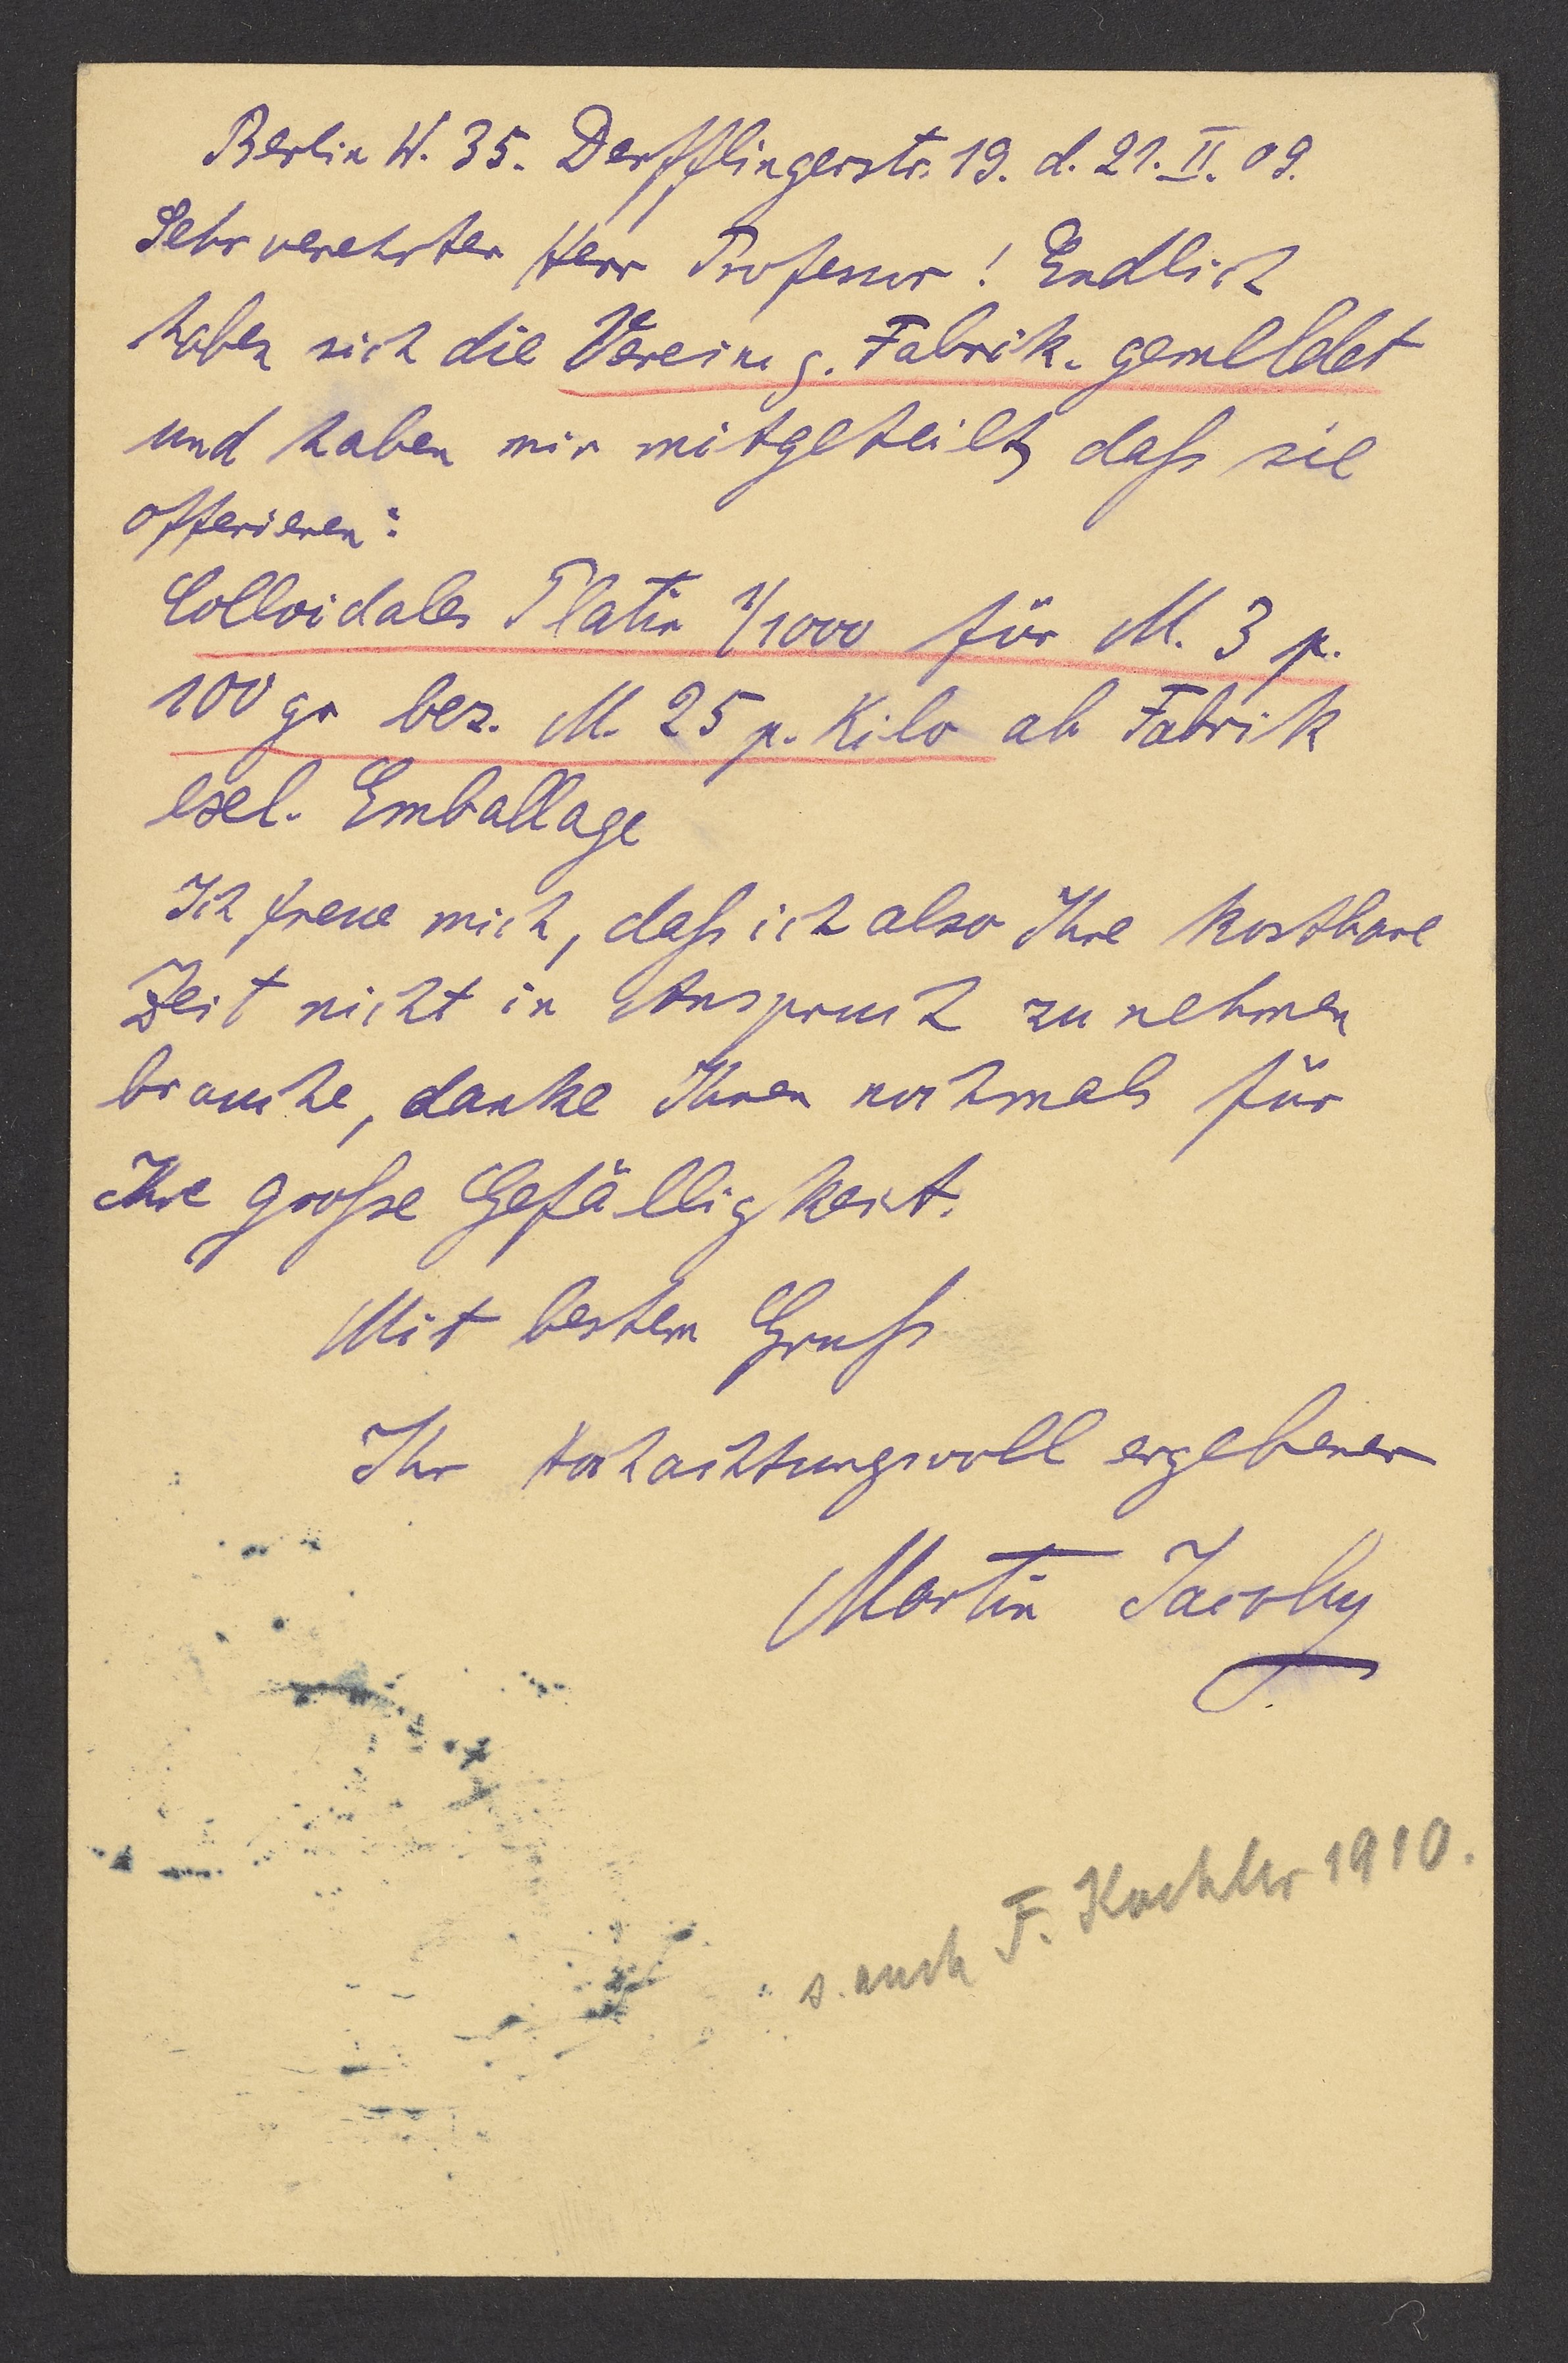 Berlin W. 35. Derfflingerstr. 19. d. 21. II. 09.
Sehr verehrter Herr Professor! Endlich
haben sich die Verein g. Fabrik. gemeldet
und haben mir mitgeteilt, daß sie
offerieren:
Colloidales Platin 1/1000 für M. 3 p.
100 gr bez. M. 25 p. Kilo ab Fabrik
excl. Emballage
Ich freue mich, daß ich also Ihre kostbare
Zeit nicht in Anspruch zu nehmen
brauche, danke Ihnen nochmals für
Ihre große Gefälligkeit.
Mit bestem Gruß
Ihr hochachtungsvoll ergebener
Martin Jacoby
s. auch F. 1910.